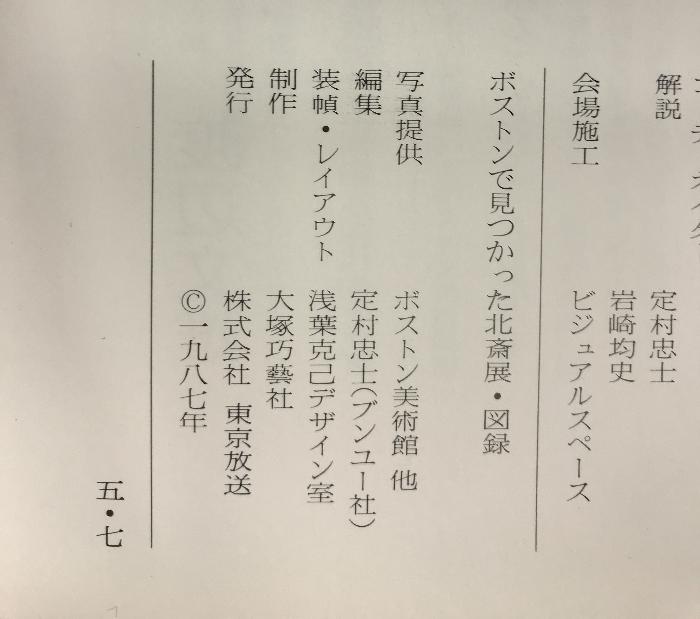 解説 定村忠士
岩崎均史
会場施工 ビジュアルスペース
ボストンで見つかった北斎展・図録
写真提供 ボストン美術館 他
編集 定村忠士(ブンユー社)
装幀・レイアウト 浅葉克己デザイン室
制作 大塚巧藝社
発行 株式会社 東京放送
©一九八七年
五・七